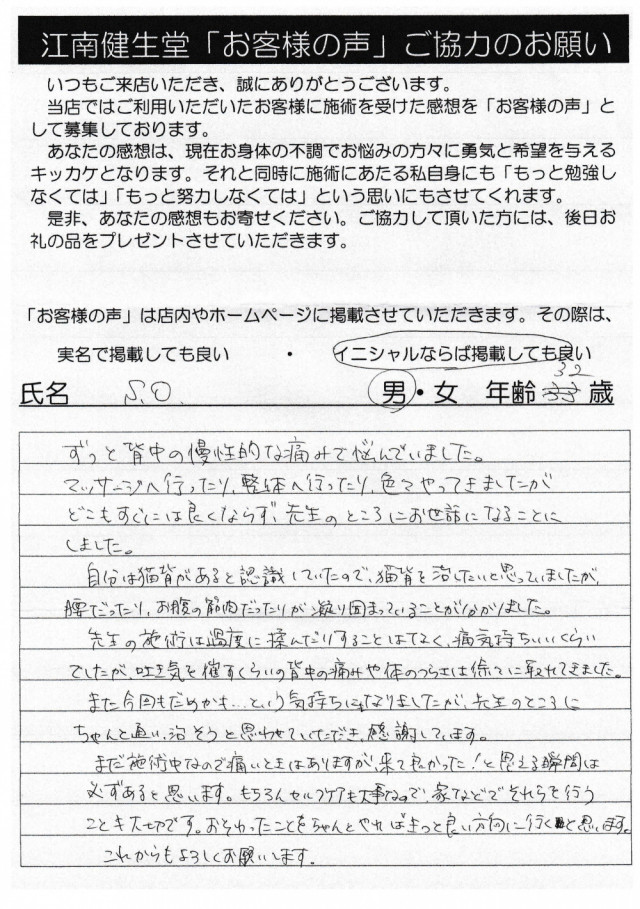 江南健生堂「お客様の声」ご協力のお願い
いつもご来店いただき、誠にありがとうございます。
当店ではご利用いただいたお客様に施術を受けた感想を「お客様の声」と
して募集しております。
あなたの感想は、現在お身体の不調でお悩みの方々に勇気と希望を与える
キッカケとなります。それと同時に施術にあたる私自身にも「もっと勉強し
なくては」「もっと努力しなくては」という思いにもさせてくれます。
是非、あなたの感想もお寄せください。ご協力して頂いた方には、後日お
礼の品をプレゼントさせていただきます。
「お客様の声」は店内やホームページに掲載させていただきます。その際は、
実名で掲載しても良い ・ イニシャルならば掲載しても良い
氏名 S.O 男・女 年齢 32 歳
ずっと背中の慢性的な痛みで悩んでいました。
マッサージへ行ったり、整体へ行ったり、色々やってきましたが
どこもすぐには良くならず、先生のところにお世話になることに
しました。
自分は猫背があると認識していたので、猫背を治したいと思っていましたが、
腰だったり、お腹の筋肉だったりが凝り固まっていることが分かりました。
先生の施術は過度に揉んだりすることはなく、痛気持ちいいくらい
でしたが、吐き気を催すくらいの背中の痛みや体のつらさは徐々に取れてきました。
また今回もだめかも…という気持ちになりましたが、先生のところに
ちゃんと通い、治そうと思わせていただき、感謝しています。
まだ施術中なので痛いときはありますが、来て良かった!と思える瞬間は
必ずあると思います。もちろんセルフケアも大事なので、家などでそれらを行う
ことも大切です。おそわったことをちゃんとやればきっと良い方向に行くと思います。
これからもよろしくお願いします。